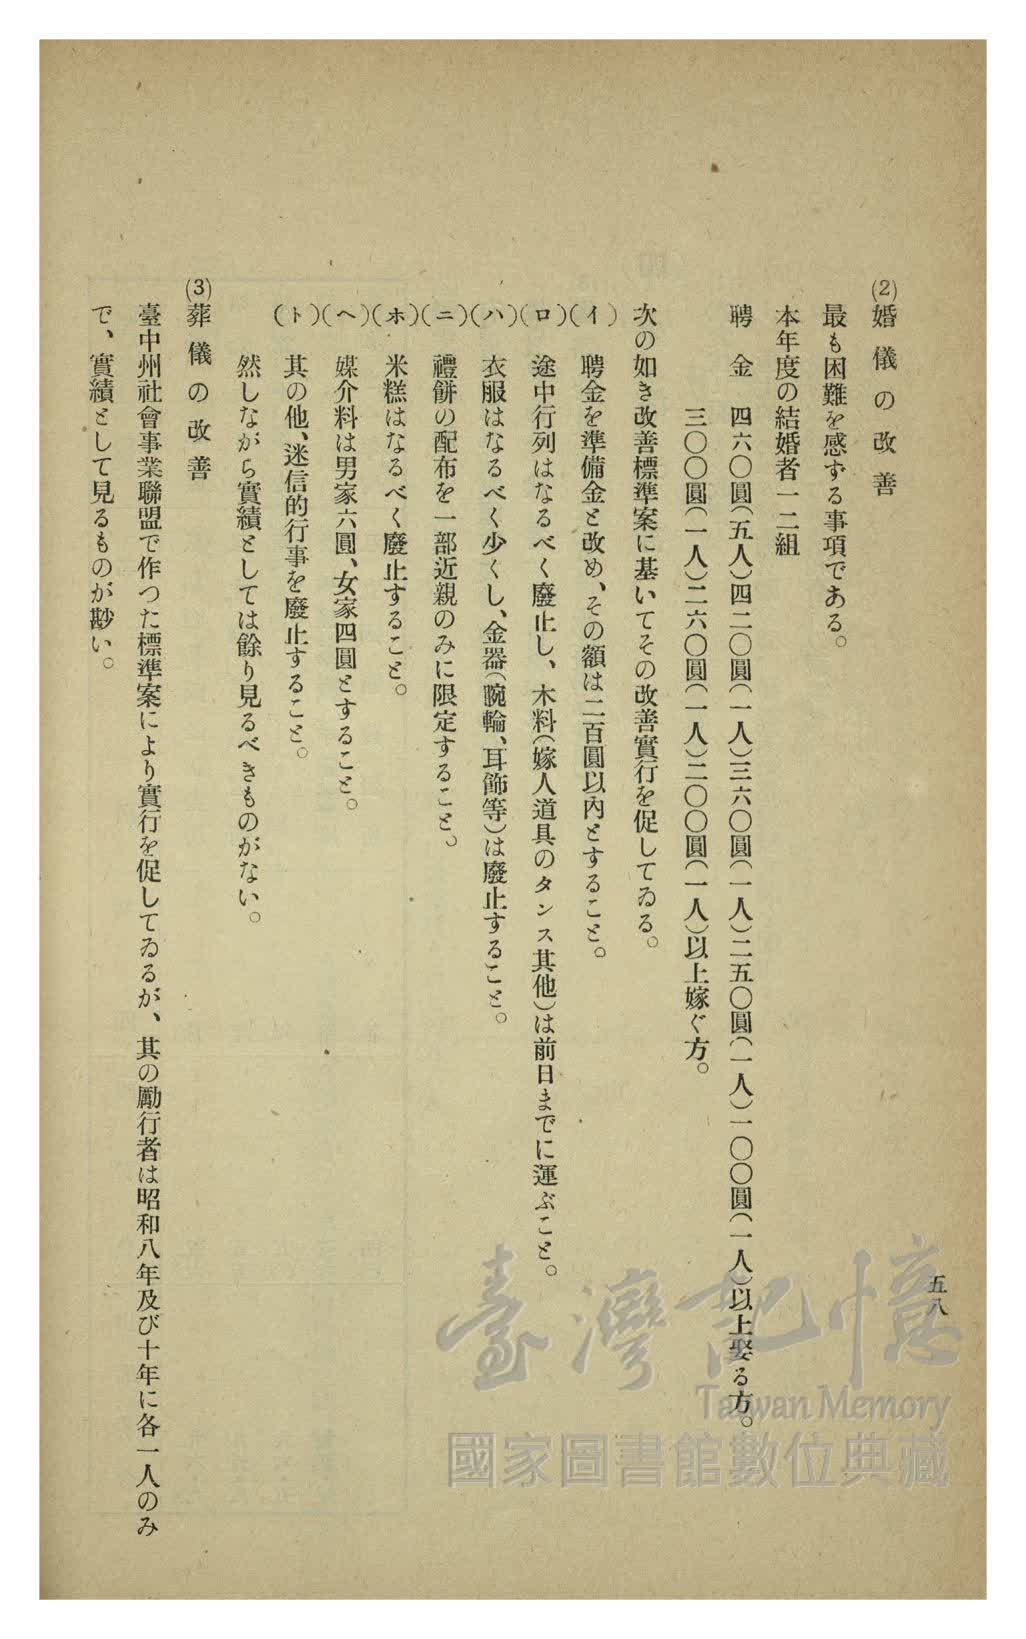 (2) 婚儀の改善
最も困難を感ずる事項である。
本年度の結婚者一二組
聘金 四六〇圓(五人)四二〇圓(一人)三六〇圓(一人)二五〇圓(一人)一〇〇圓(一人)以上娶る方。
三〇〇圓(一人)二六〇圓(一人)二〇〇圓(一人)以上嫁ぐ方。
次の如き改善標準案に基いてその改善實行を促してゐる。
(イ) 聘金を準備金と改め、その額は二百圓以內とすること。
(ロ) 途中行列はなるべく廢止し、木料(嫁人道具のタンス其他)は前日までに運ぶこと。
(ハ) 衣服はなるべく少くし、金器(腕輪、耳飾等)は廢止すること。
(ニ) 禮餅の配布を一部近親のみに限定すること。
(ホ) 米糕はなるべく廢止すること。
(ヘ) 媒介料は男家六圓、女家四圓とすること。
(ト) 其の他、迷信的行事を廢止すること。
然しながら實績としては餘り見るべきものがない。
(3) 葬儀の改善
臺中州社會事業聯盟で作つた標準案により實行を促してゐるが、其の勵行者は昭和八年及び十年に各一人のみ
で、實績として見るものが尠い。
五八
臺灣記憶
Taiwan Memory
國家圖書館數位典藏